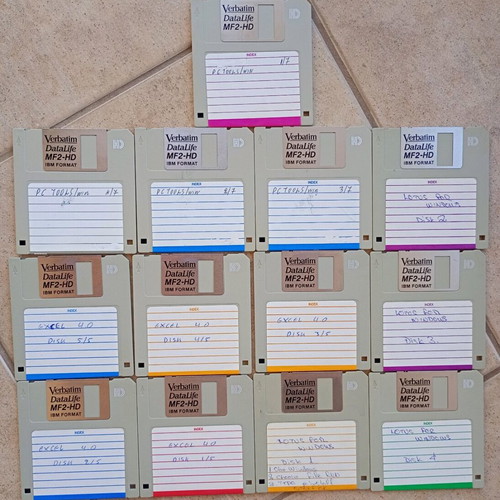 Verbatim
DataLife
MF2-HD
INDEX
1/7
PC TOOLS/WIN
Verbatim
DataLife
MF2-HD
IBM FORMAT
INDEX
PC TOOLS/WIN 2/7
Verbatim
DataLife
MF2-HD
IBM FORMAT
INDEX
PC TOOLS/WIN /7
Verbatim
DataLife
MF2-HD
IBM FORMAT
INDEX
PC TOOLS/WIN 3/7
Verbatim
DataLife
MF2-HD
IBM FORMAT
INDEX
LOTUS FOR
WINDOWS
DISK 2
Verbatim
DataLife
MF2-HD
IBM FORMAT
INDEX
EXCEL 4.0
DISK 5/5
Verbatim
DataLife
MF2-HD
IBM FORMAT
INDEX
EXCEL 4.0
DISK 4/5
Verbatim
DataLife
MF2-HD
IBM FORMAT
INDEX
EXCEL 4.0
DISK 3/5
Verbatim
DataLife
MF2-HD
IBM FORMAT
INDEX
LOTUS FOR
WINDOWS
DISK 3
Verbatim
DataLife
MF2-HD
IBM FORMAT
INDEX
EXCEL 4.0
DISK 2/5
Verbatim
DataLife
MF2-HD
IBM FORMAT
INDEX
EXCEL 4.0
DISK 1/5
Verbatim
DataLife
MF2-HD
IBM FORMAT
INDEX
LOTUS FOR
WINDOWS
DISK 1
Verbatim
DataLife
MF2-HD
IBM FORMAT
INDEX
LOTUS FOR
WINDOWS
DISK 4